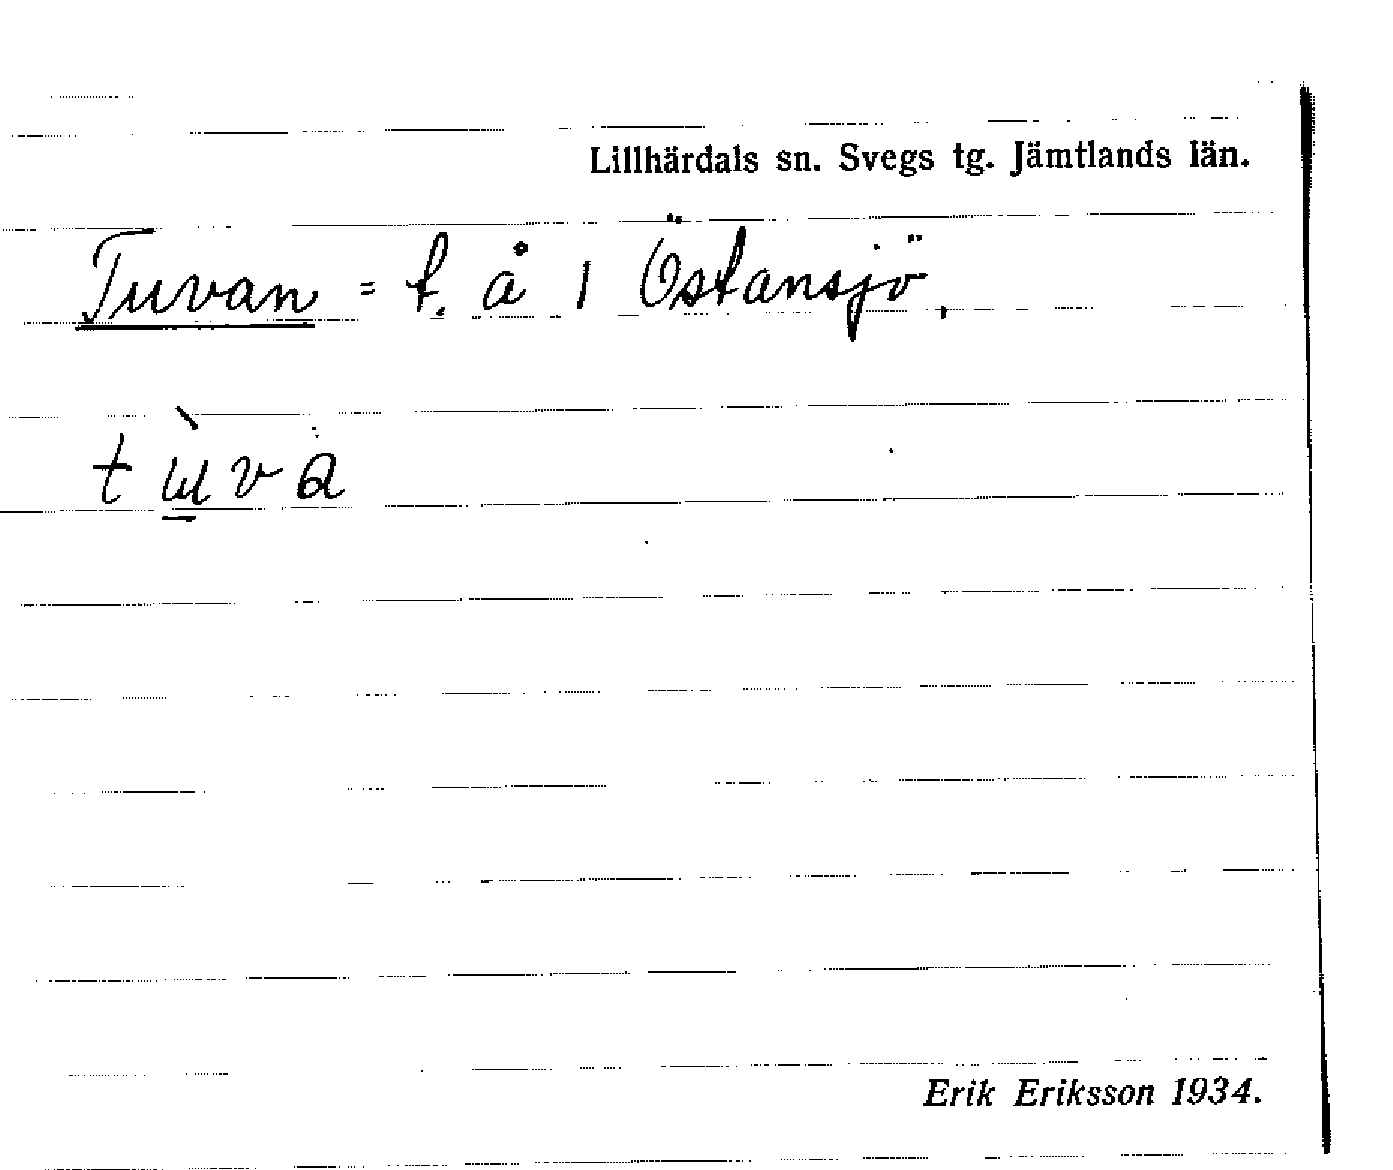 Lillhärdals sn. Svegs tg. Jämtlands län.
Tuvan = t. å i Östansjö.
tɯ̀va
Erik Eriksson 1934.